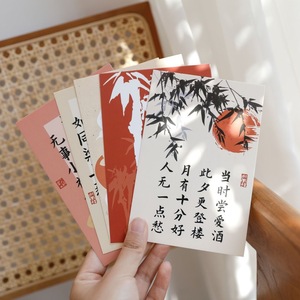 当时尝爱酒
此夕更登楼
月有十分好
人无一点愁
如同
无事小